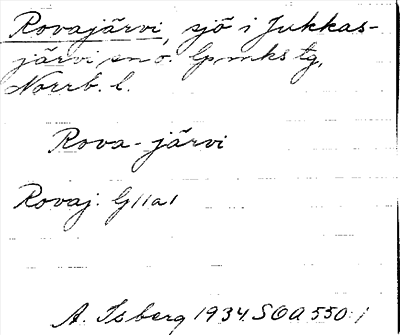 Rovajärvi, sjö i Jukkas-
järvi sn o. lpmks tg,
Norrb. l.
Rova-järvi
Rovaj. G11a1
A. Isberg 1934. SOA 550:1